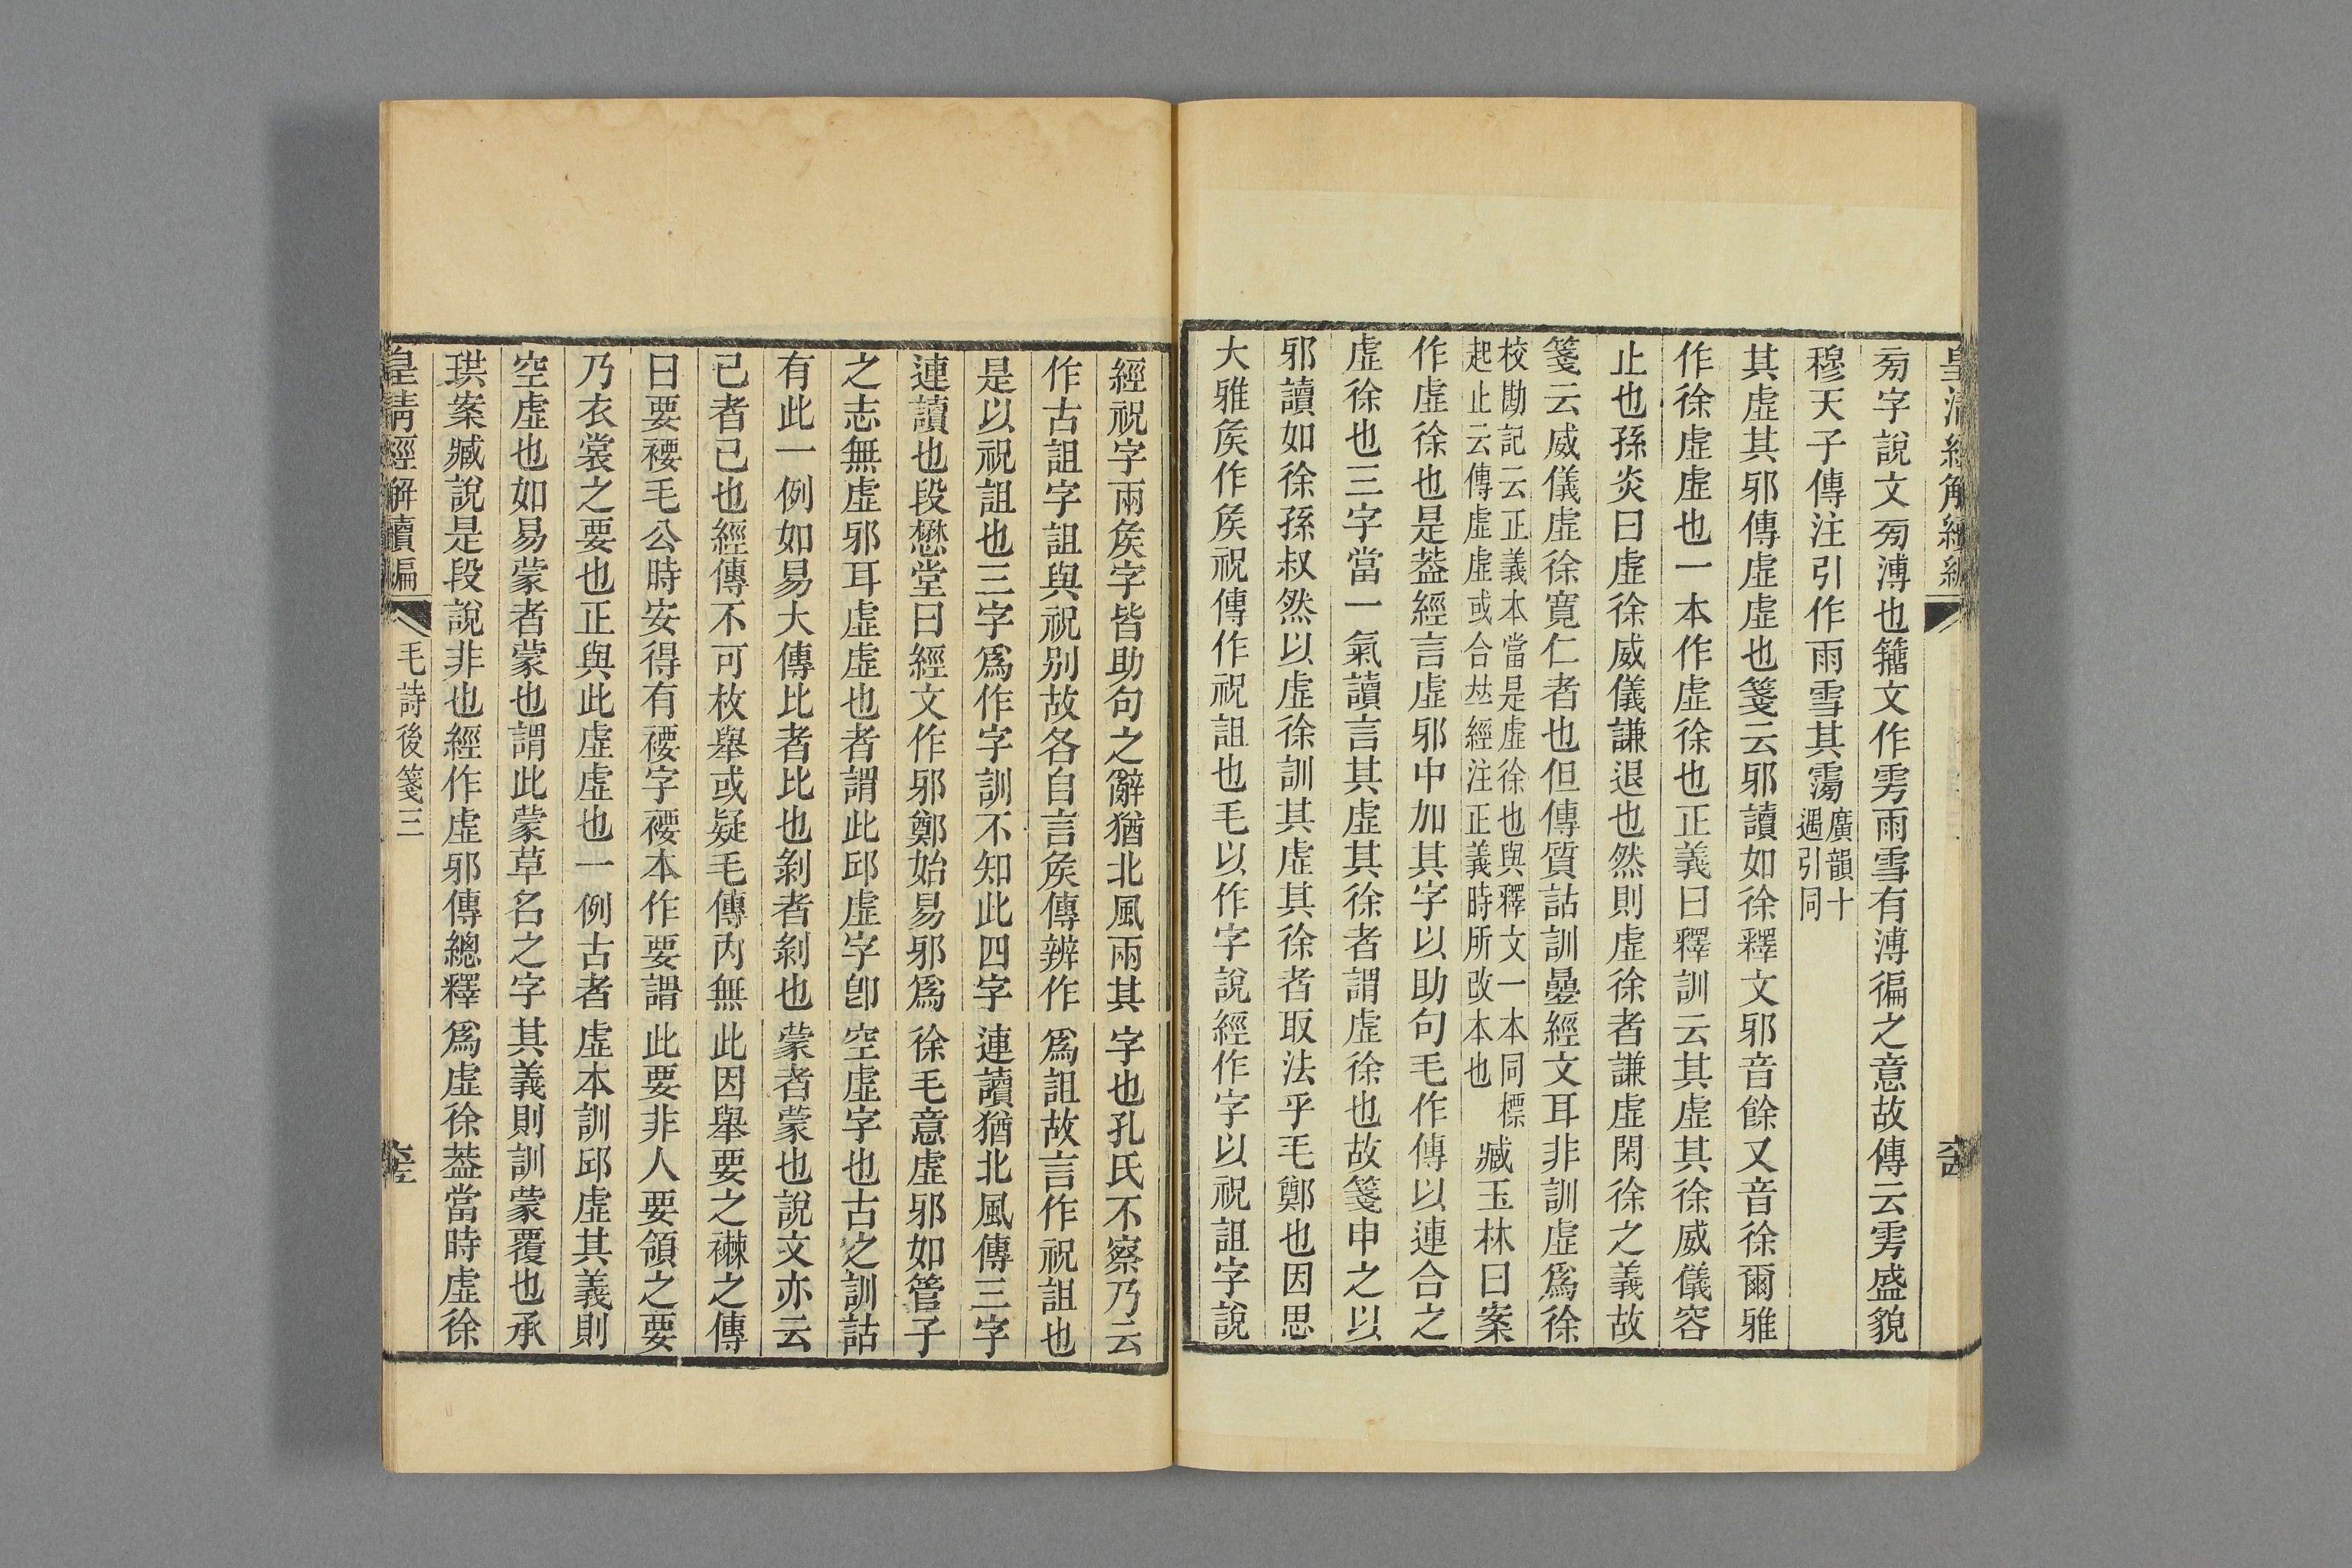 皇清經解續編
㫄字說文㫄溥也籀文作雱雨雪有溥徧之意故傳云雱盛貌
穆天子傳注引作雨雪其霶廣韻十遇引同
其虛其邪傳虛虛也箋云邪讀如徐釋文邪音餘又音徐爾雅
作徐虛虛也一本作虛徐也正義曰釋訓云其虛其徐威儀容
止也孫炎曰虛徐威儀謙退也然則虛徐者謙虛閑徐之義故
箋云威儀虛徐寬仁者也但傳質詁訓曡經文耳非訓虛爲徐
校勘記云正義本當是虛徐也與釋文一本同標起止云傳虛虛或合𠀤經注正義時所改本也臧玉林曰案
作虛徐也是葢經言虛邪中加其字以助句毛作傳以連合之
虛徐也三字當一氣讀言其虛其徐者謂虛徐也故箋申之以
邪讀如徐孫叔然以虛徐訓其虛其徐者取法乎毛鄭也因思
大雅矦作矦祝傳作祝詛也毛以作字說經作字以祝詛字說
經祝字兩矦字皆助句之辭猶北風兩其字也孔氏不察乃云
作古詛字詛與祝别故各自言矦傳辨作爲詛故言作祝詛也
是以祝詛也三字爲作字訓不知此四字連讀猶北風傳三字
連讀也段懋堂曰經文作邪鄭始易邪爲徐毛意虛邪如管子
之志無虛邪耳虛虛也者謂此邱虛字卽空虛字也古之訓詁
有此一例如易大傳比者比也剝者剝也蒙者蒙也說文亦云
已者已也經傳不可枚舉或疑毛傳內無此因舉要之襋之傳
曰要䙅毛公時安得有䙅字䙅本作要謂此要非人要領之要
乃衣裳之要也正與此虛虛也一例古者虛本訓邱虛其義則
空虛也如易蒙者蒙也謂此蒙草名之字其義則訓蒙覆也承
珙案臧說是段說非也經作虛邪傳總釋爲虛徐葢當時虛徐
皇淸經解續編
毛詩後箋三